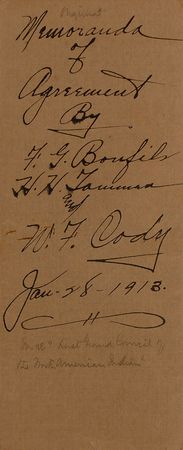 Original
Memoranda
of
Agreement
By
F. G. Bonfils
H. H. Tammen
and
W. F. Cody
Jan-28-1913.
Last Grand Council of
the North American Indian